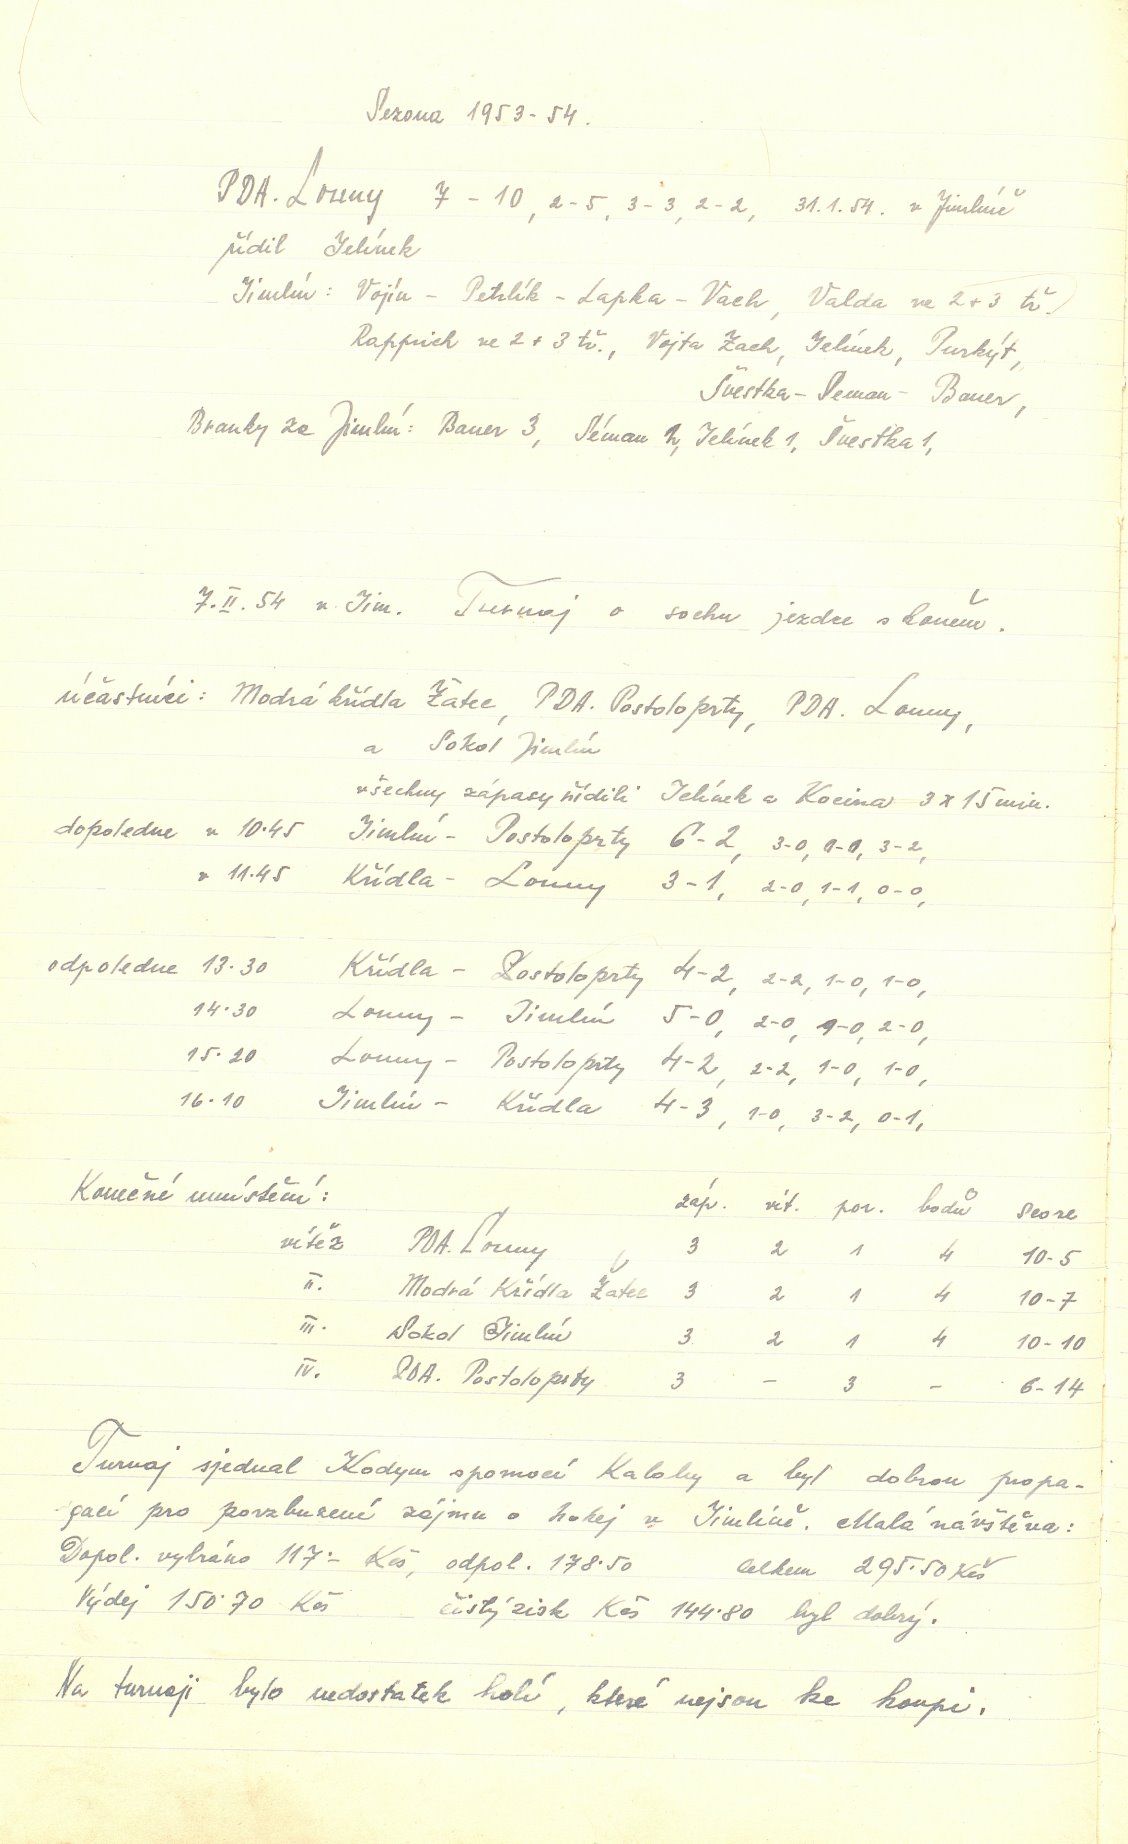 Sezona 1953-54.
PDA. Louny 7 - 10, 2-5, 3-3, 2-2, 31.1.54. v Jimlíně
řídil Jelínek
Jimlín: Vojín - Petrlík - Lapka - Vach, Valda ve 2+3 tř.
Rappich ve 2+3 tř., Vojta Zach, Jelínek, Purkýt,
Švestka - Seman - Bauer,
Branky za Jimlín: Bauer 3, Séman 2, Jelínek 1, Švestka 1,
7.II.54 v Jim. Turnaj o sochu jezdce s koněm.
účastníci: Modrá křídla Žatec, PDA. Postoloprty, PDA. Louny,
a Sokol Jimlín
všechny zápasy řídili Jelínek a Kocina 3x15 min.
dopoledne v 10.45 Jimlín - Postoloprty 6-2, 3-0, 0-0, 3-2,
v 11.45 Křídla - Louny 3-1, 2-0, 1-1, 0-0,
odpoledne 13.30 Křídla - Postoloprty 4-2, 2-2, 1-0, 1-0,
14.30 Louny - Jimlín 5-0, 2-0, 1-0, 2-0,
15.20 Louny - Postoloprty 4-2, 2-2, 1-0, 1-0,
16.10 Jimlín - Křídla 4-3, 1-0, 3-2, 0-1,
Konečné umístění: záp. vít. por. bodů score
vítěz PDA. Louny 3 2 1 4 10-5
II. Modrá Křídla Žatec 3 2 1 4 10-7
III. Sokol Jimlín 3 2 1 4 10-10
IV. PDA. Postoloprty 3 - 3 - 6-14
Turnaj sjednal Kodym spomocí Kaloby a byl dobrou propa-
gací pro povzbuzení zájmu o hokej v Jimlíně. Malá návštěva:
Dopol. vybráno 117.- Kčs, odpol. 178.50 celkem 295.50 Kčs
Výdej 150.70 Kčs čistý zisk Kčs 144.80 byl dobrý.
Na turnaji bylo nedostatek holí, které nejsou ke koupi.